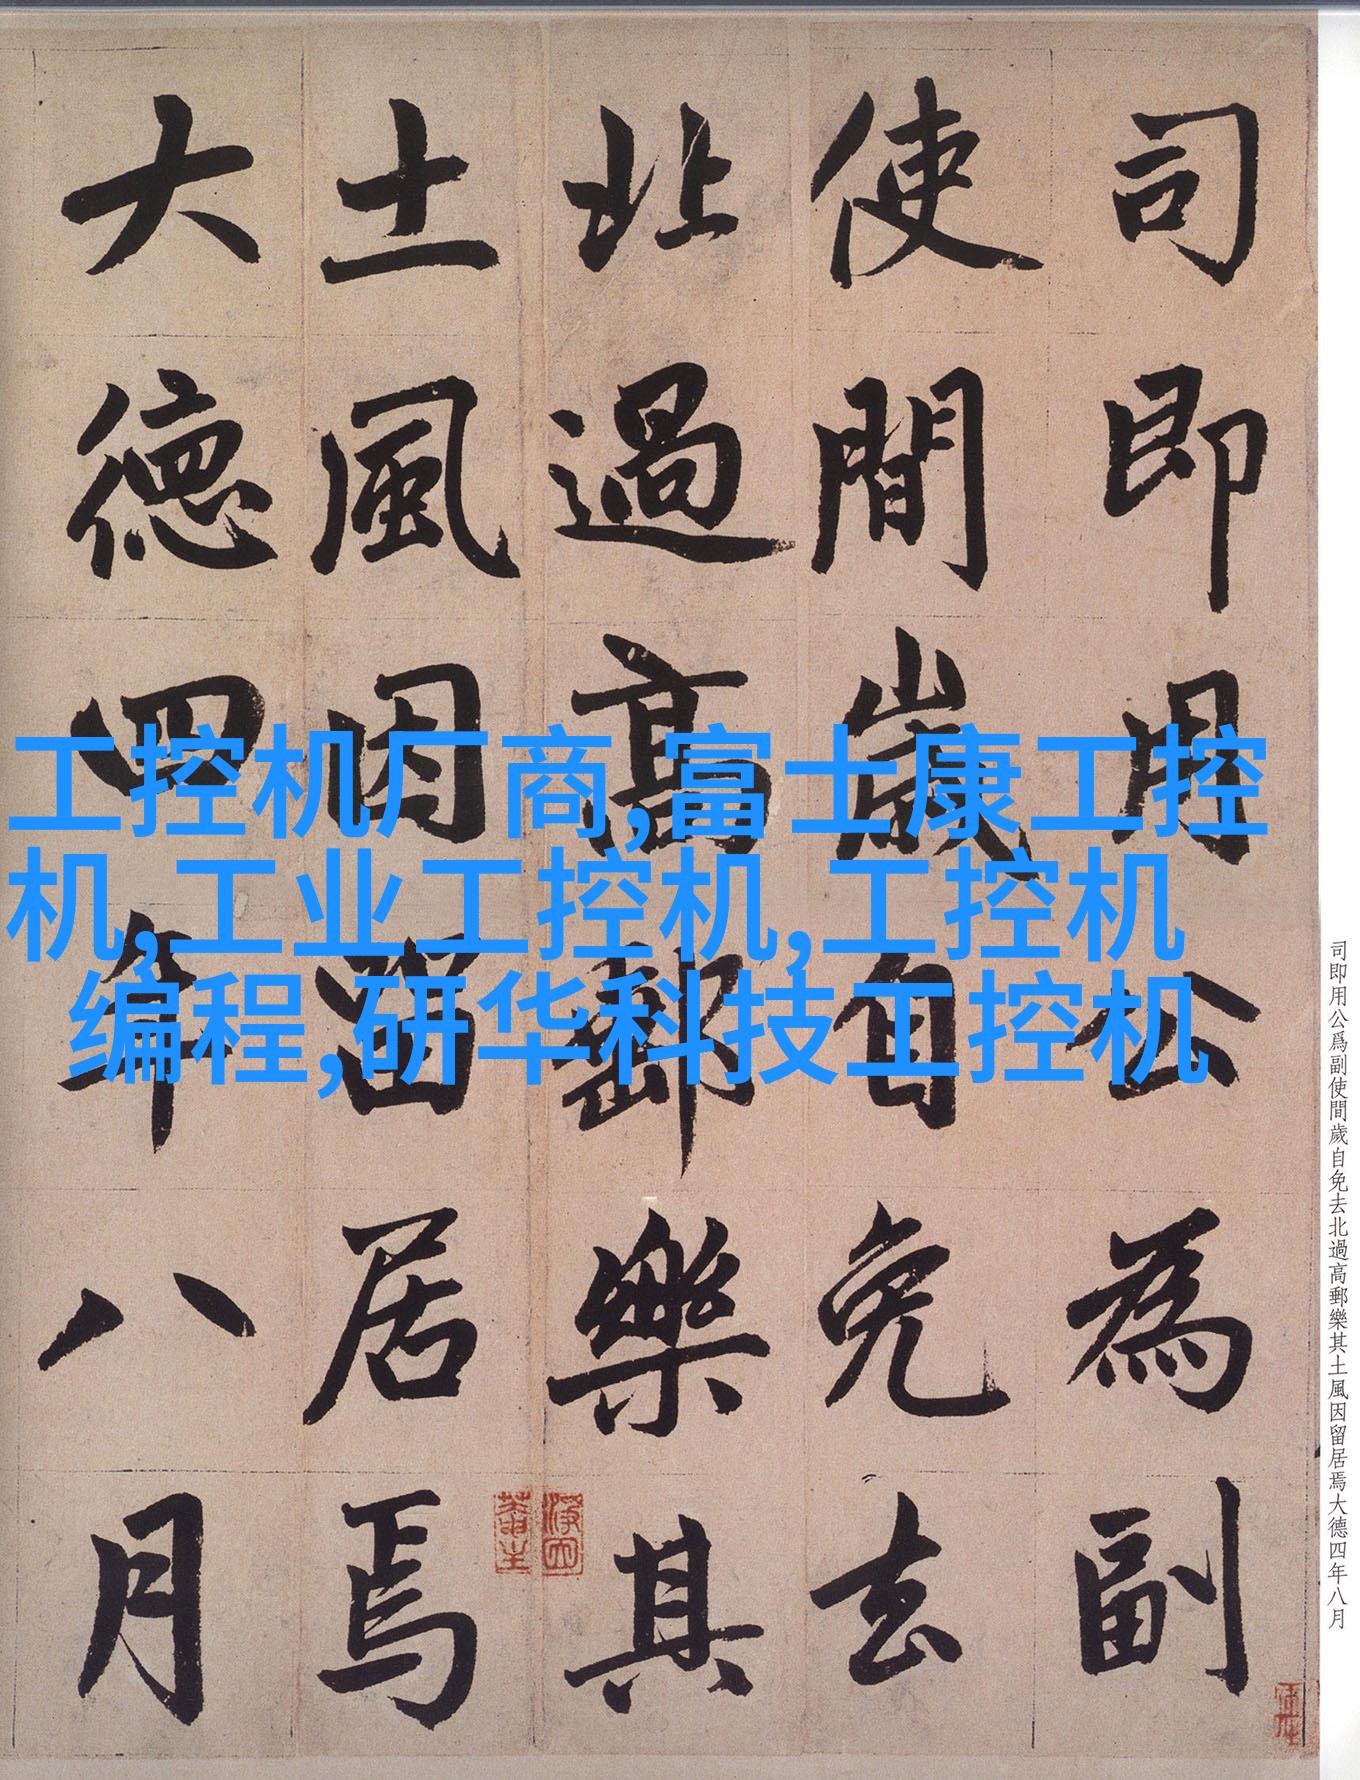 司即用公為副
使間歲自免去
北過高郵樂其
土風因留居焉
大德四年八月
工控机厂商,富士康工控
机,工业工控机,工控机
编程,研华科技工控机
司即用公爲副使間歲自免去北過高郵樂其土風因留居焉大德四年八月